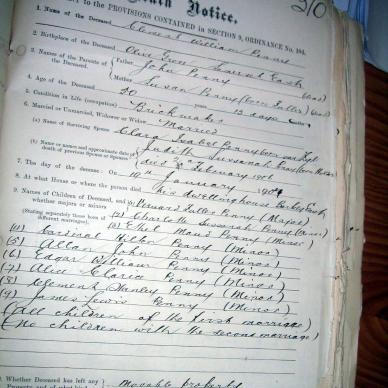 210
Death Notice.
to the PROVISIONS CONTAINED in SECTION 9, ORDINANCE No. 104.
1. Name of the Deceased Clement William Penny
2. Birthplace of the Deceased Olive Grove
3. Names of the Parents of the Deceased { Father John Penny
Mother Susan Penny (born Fuller)
4. Age of the Deceased 50 years 13 days
5. Condition in Life (occupation) Brickmaker
6. Married or Unmarried, Widower or Widow Married
(a) Name of Surviving Spouse Clara Isabel Penny born
(b) Name or names and approximate date of death of previous Spouse or Spouses } Judith Susannah
died February 1901
7. The day of the decease: On 19th January 1904
8. At what House or where the person died his dwellinghouse
9. Names of Children of Deceased, and whether majors or minors
(Stating separately those born of different marriages). Fuller Penny (Major)
(2) Charlotte Susannah Penny
(3) Ethel Maud Penny (Minor)
(4) Penny (Minor)
(5) Allan John Penny (Minor)
(6) Edgar William Penny (Minor)
(7) Alice Clarice Penny (Minor)
(8) Clement Stanley Penny (Minor)
(9) James Lewis Penny (Minor)
(All children of the first marriage)
(No children with the second marriage)
Whether Deceased has left any Movable property